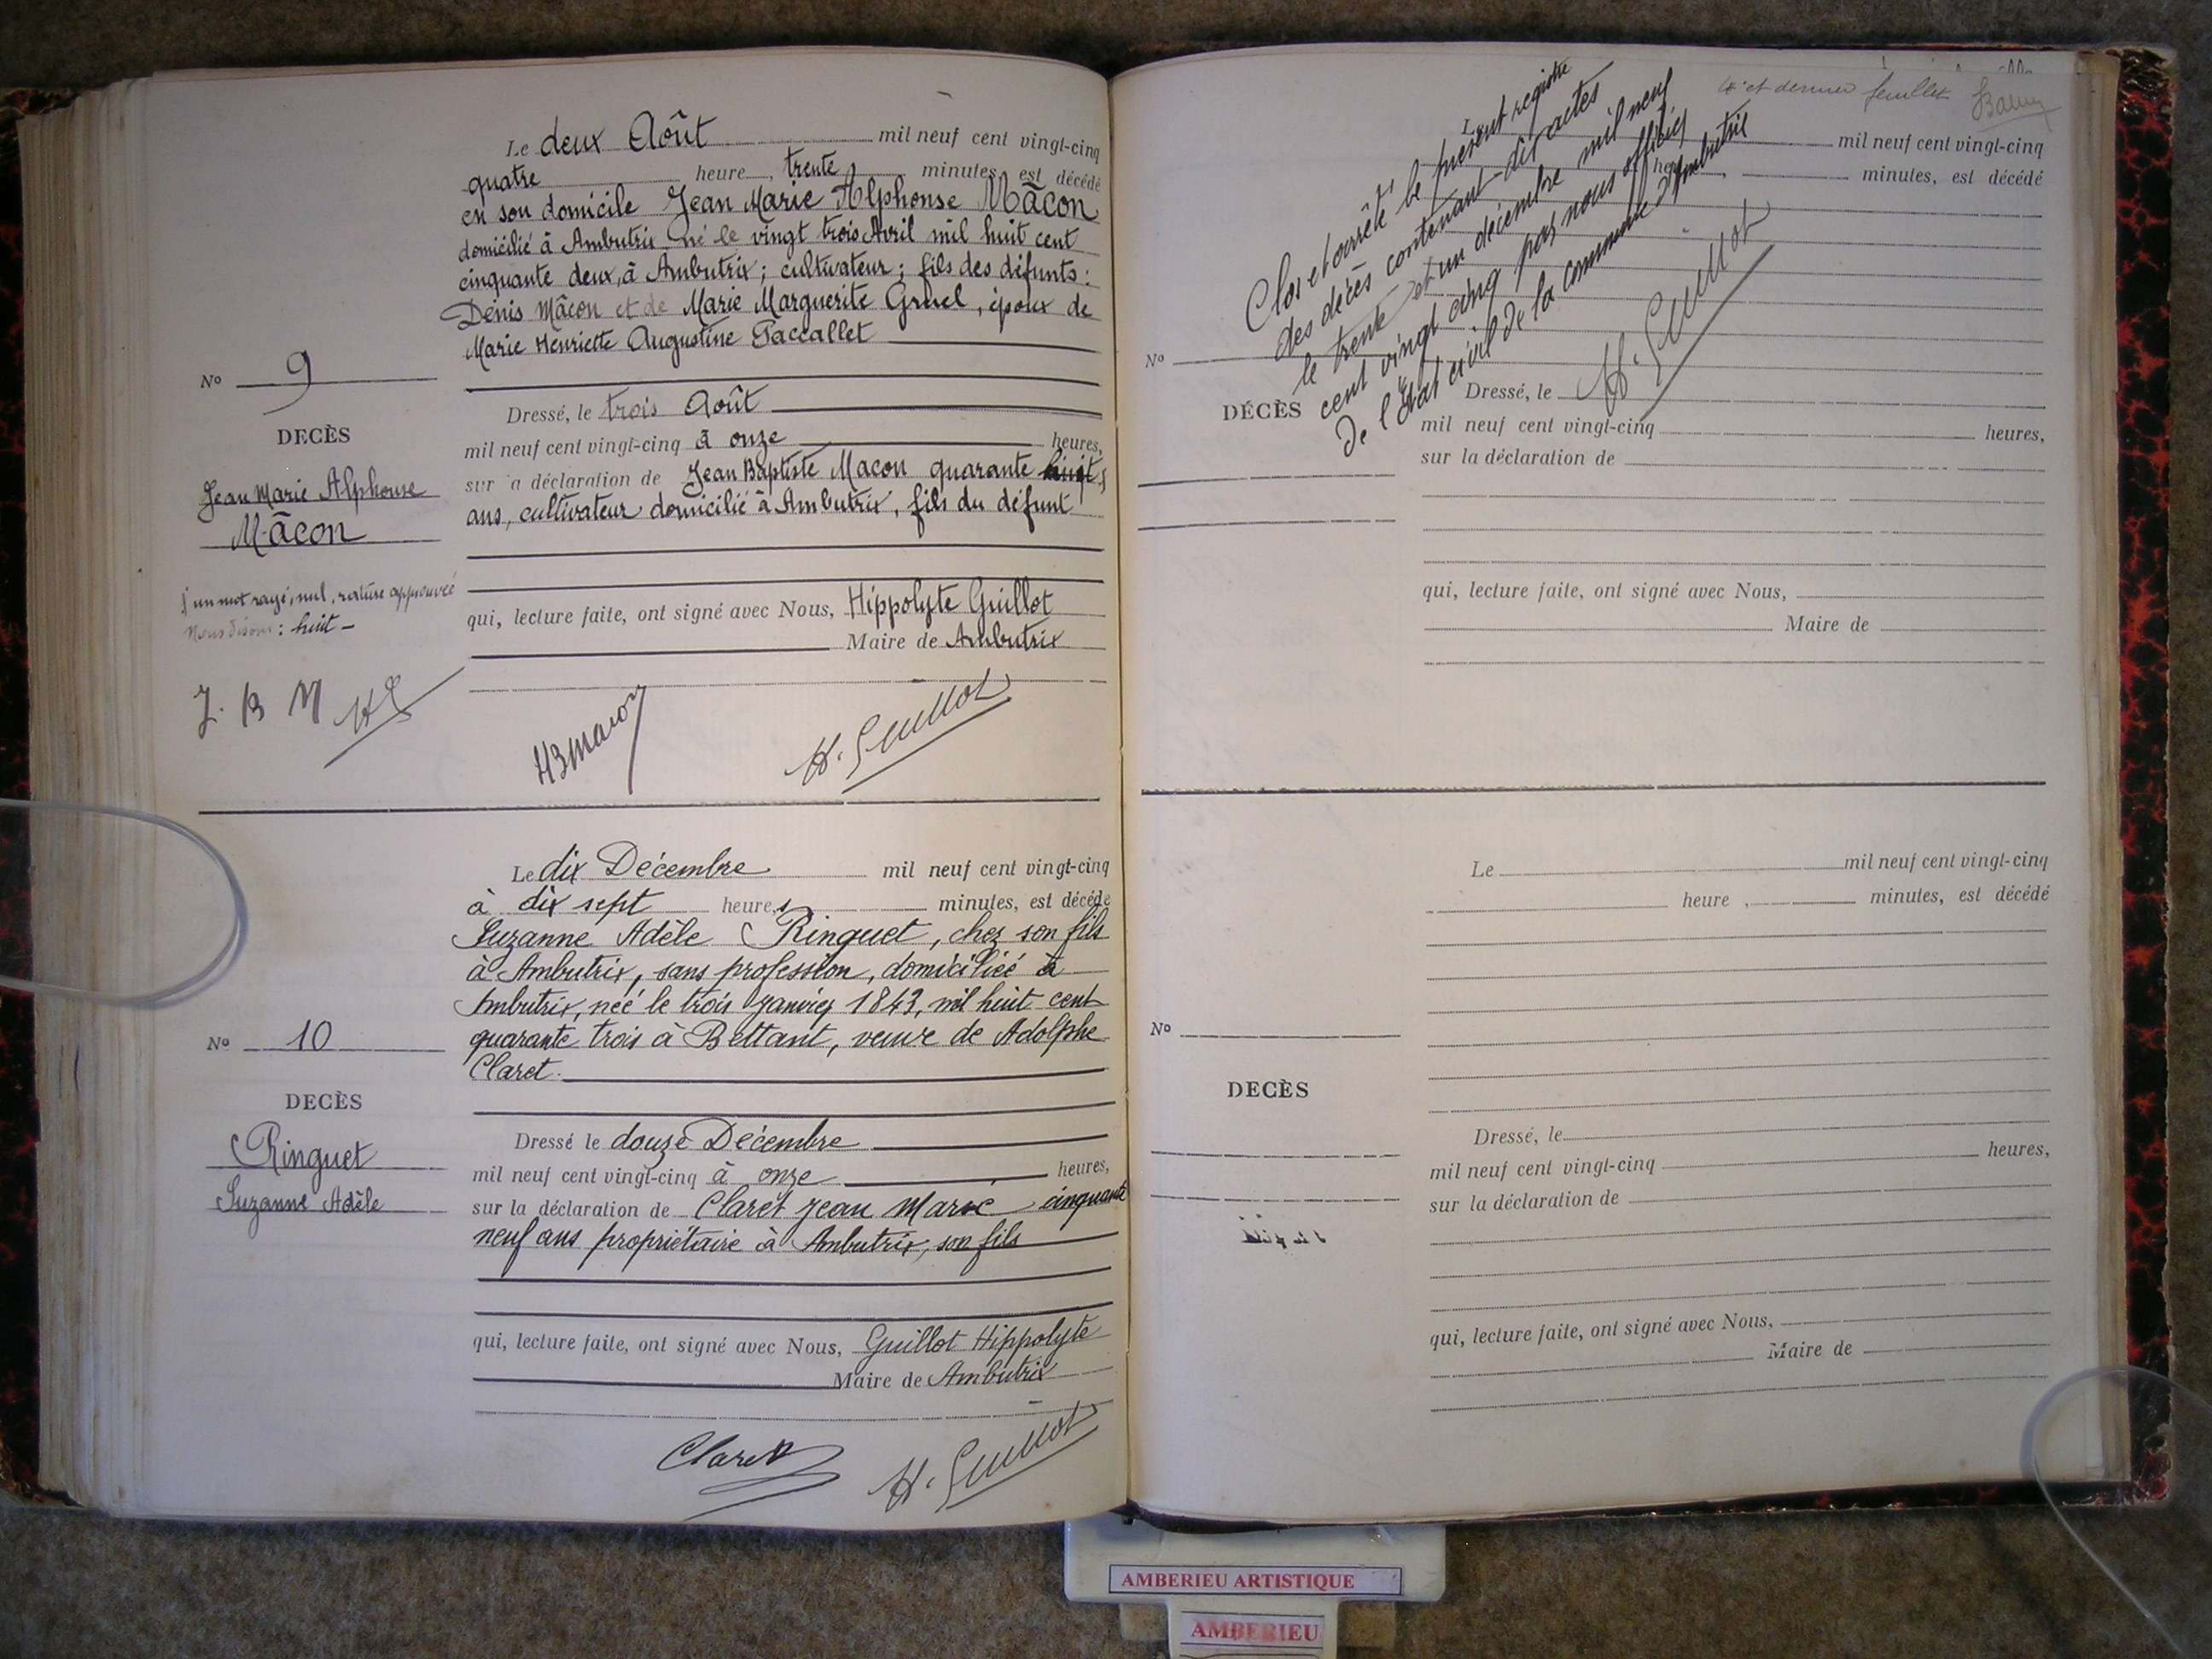 Le deux Août mil neuf cent vingt-cinq
quatre heure, trente minutes, est décédé
en son domicile Jean Marie Alphonse Mâcon
domicilié à Ambutrix né le vingt trois Avril mil huit cent
cinquante deux, à Ambutrix; cultivateur; fils des défunts:
Dénis Mâcon et de Marie Marguerite Gruel, époux de
Marie Henriette Augustine Paccallet
No 9
DECÈS
Jean Marie Alphonse
Mâcon
Dressé, le trois Août
mil neuf cent vingt-cinq à onze heures,
sur a déclaration de Jean Baptiste Macon quarante huit
ans, cultivateur domicilié à Ambutrix, fils du défunt
un mot rayé, nul, rature approuvée
Nous disons: huit -
qui, lecture faite, ont signé avec Nous, Hippolyte Guillot
Maire de Ambutrix
J. B M HG
HBmacon
H. Guillot
Le dix Décembre mil neuf cent vingt-cinq
à dix sept heures minutes, est décédé
Suzanne Adèle Ringuet, chez son fils
à Ambutrix, sans profession, domiciliée à
Ambutrix, née le trois janvier 1843, mil huit cent
quarante trois à Bettant, veuve de Adolphe
Claret.
No 10
DECÈS
Ringuet
Suzanne Adèle
Dressé le douze Décembre
mil neuf cent vingt-cinq à onze heures,
sur la déclaration de Claret Jean Marie cinquante
neuf ans propriétaire à Ambutrix, son fils
qui, lecture faite, ont signé avec Nous, Guillot Hippolyte
Maire de Ambutrix
Claret
H. Guillot
et dernier feuillet
Clos et arrêté le présent registre
des décès contenant dix actes
le trente et un décembre mil neuf
cent vingt cinq par nous officier
de l'Etat civil de la commune d'Ambutrix
H. Guillot
Le mil neuf cent vingt-cinq
heure, minutes, est décédé
No
DÉCÈS
Dressé, le
mil neuf cent vingt-cinq heures,
sur la déclaration de
qui, lecture faite, ont signé avec Nous,
Maire de
Le mil neuf cent vingt-cinq
heure, minutes, est décédé
No
DECÈS
Dressé, le
mil neuf cent vingt-cinq heures,
sur la déclaration de
qui, lecture faite, ont signé avec Nous,
Maire de
AMBERIEU ARTISTIQUE
AMBERIEU